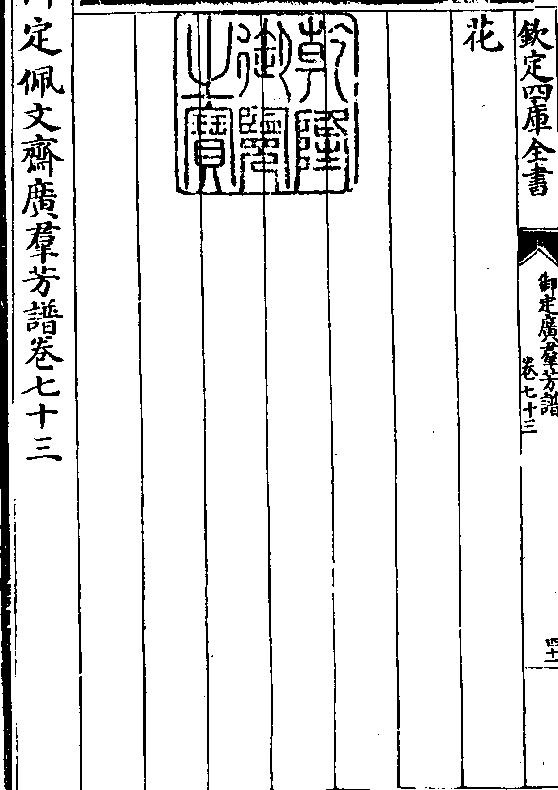 欽定四庫全書
御定廣羣芳譜
卷七十三
四十一
花
乾隆
御覽
之寶
御定佩文齋廣羣芳譜卷七十三